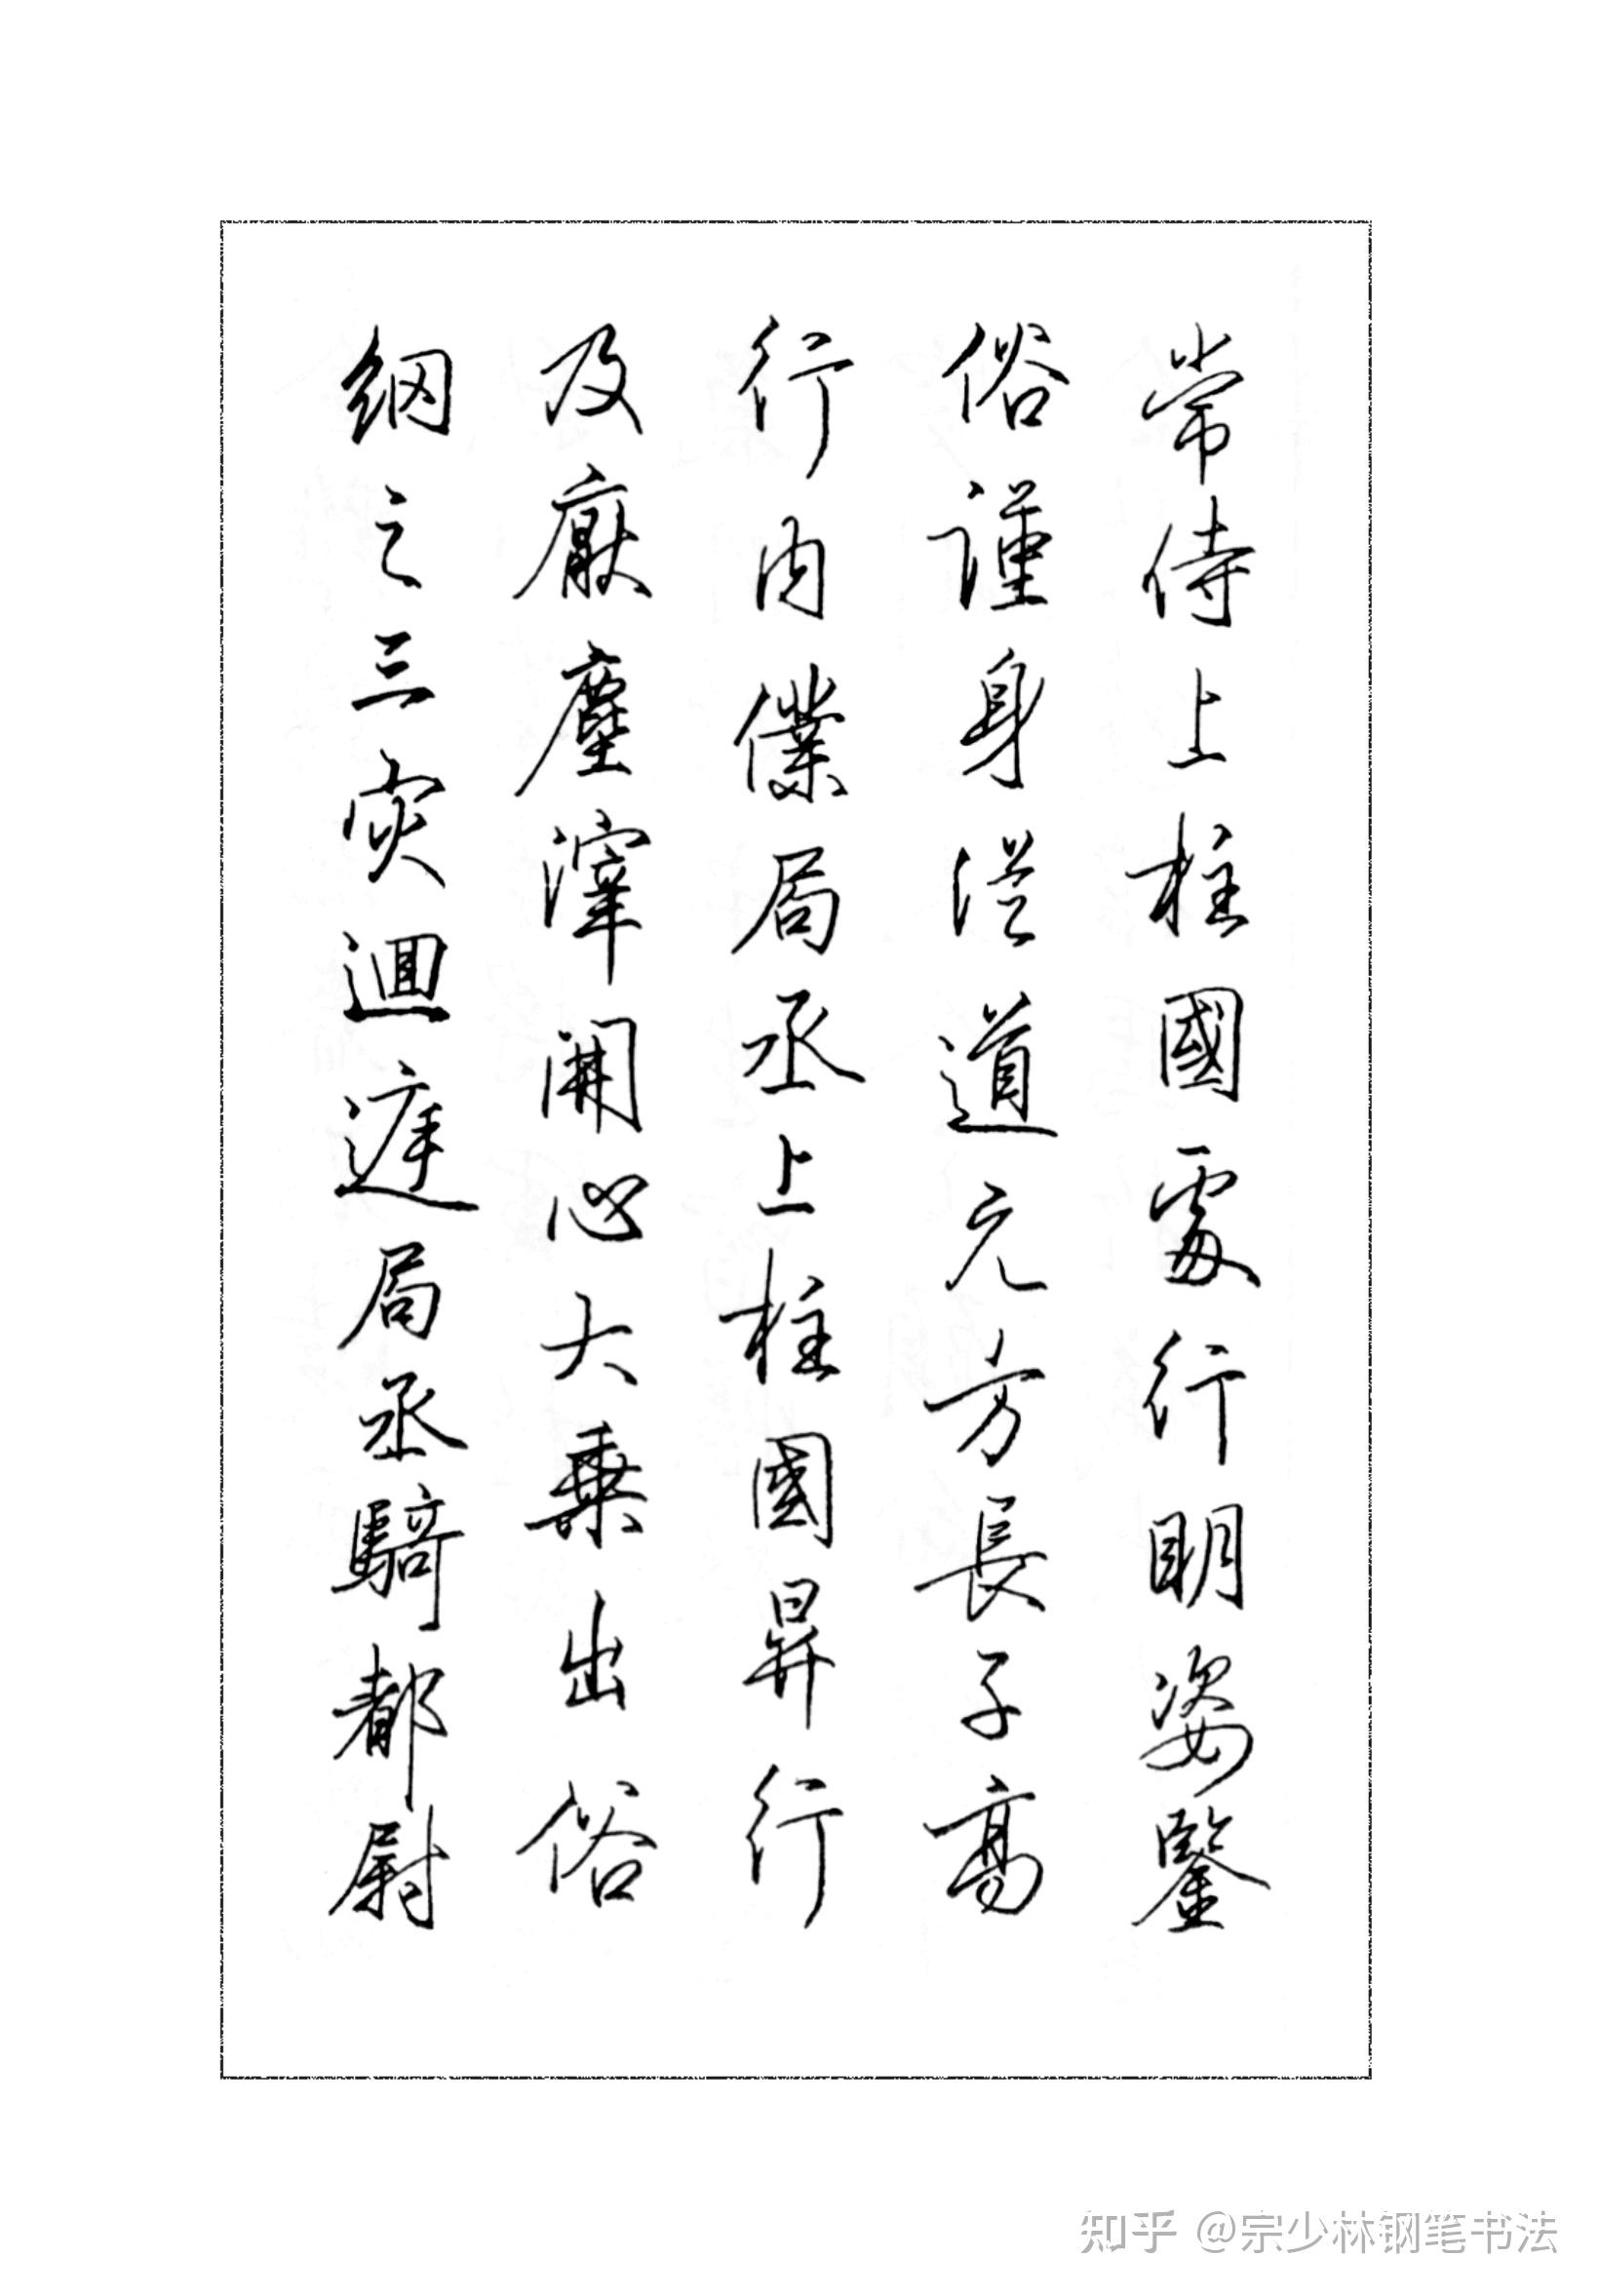 常侍上柱國處行明姿鑒
俗謹身從道元方長子高
行內僕局丞上柱國昇行
及厭塵滓開心大乘出俗
網之三灾迴遅局丞騎都尉
知乎 @宗少林钢笔书法